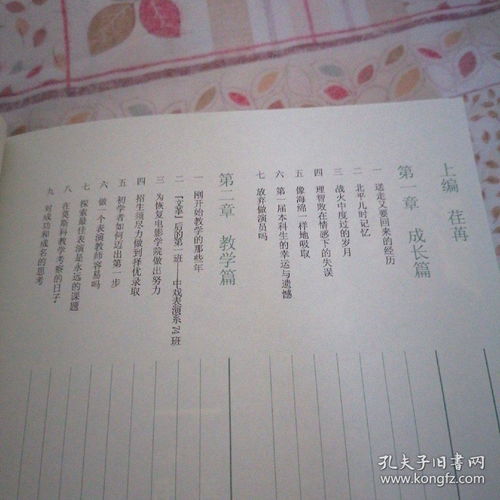 上编 荏苒
第一章 成长篇
一 送走又要回来的经历
二 北平儿时记忆
三 战火中度过的岁月
四 理智败在情感下的失误
五 像海绵一样地吸取
六 第一届本科生的幸运与遗憾
七 放弃做演员吗
第二章 教学篇
一 刚开始教学的那些年
二 “文革”后的第一班——中戏表演系74班
三 为恢复电影学院做出努力
四 招生须尽力做到择优录取
五 初学者如何迈出第一步
六 做一个表演教师容易吗
七 探索最佳表演是永远的课题
八 在莫斯科教学考察的日子
九 对成功和成名的思考
孔夫子旧书网
www.kongfz.com